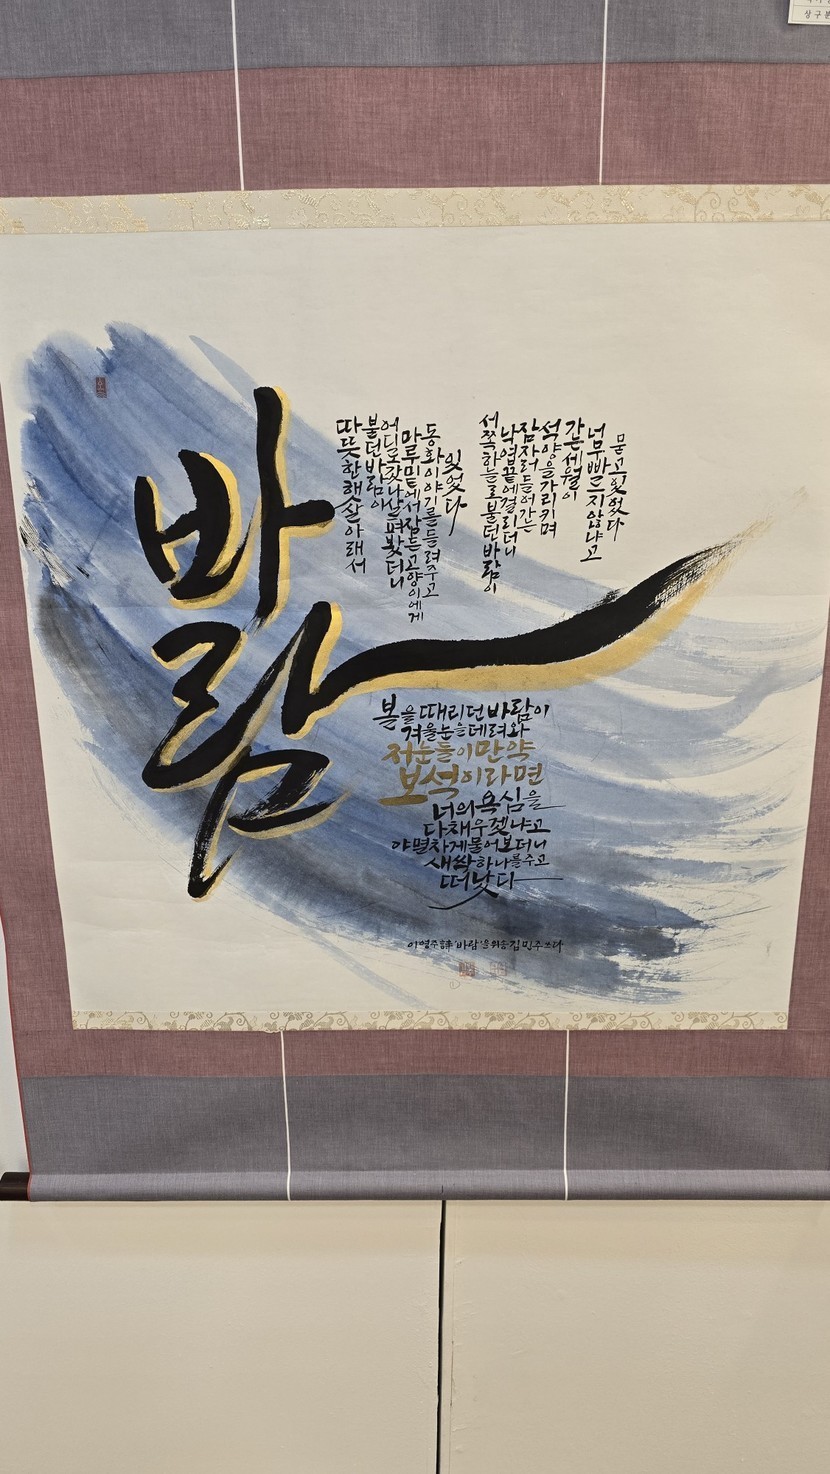 바람
따뜻한 햇살아래서
불던 바람이
어디로 갔나 살펴봤더니
마루밑에서 잠든 고양이에게
동화이야기를 들려주고
있었다
서쪽하늘로 불던 바람이
낙엽끝에 걸리더니
잠자러 들어가는
석양을 가리키며
가는 세월이
너무 빠르지 않냐고
묻고 있었다
볼을 때리던 바람이
겨울눈을 데려와
저 눈들이 만약
보석이라면
너의 욕심을
다 채우겠냐고
야멸차게 물어보더니
새싹 하나를 주고
떠났다
詩 '바람'을 김민주 쓰다